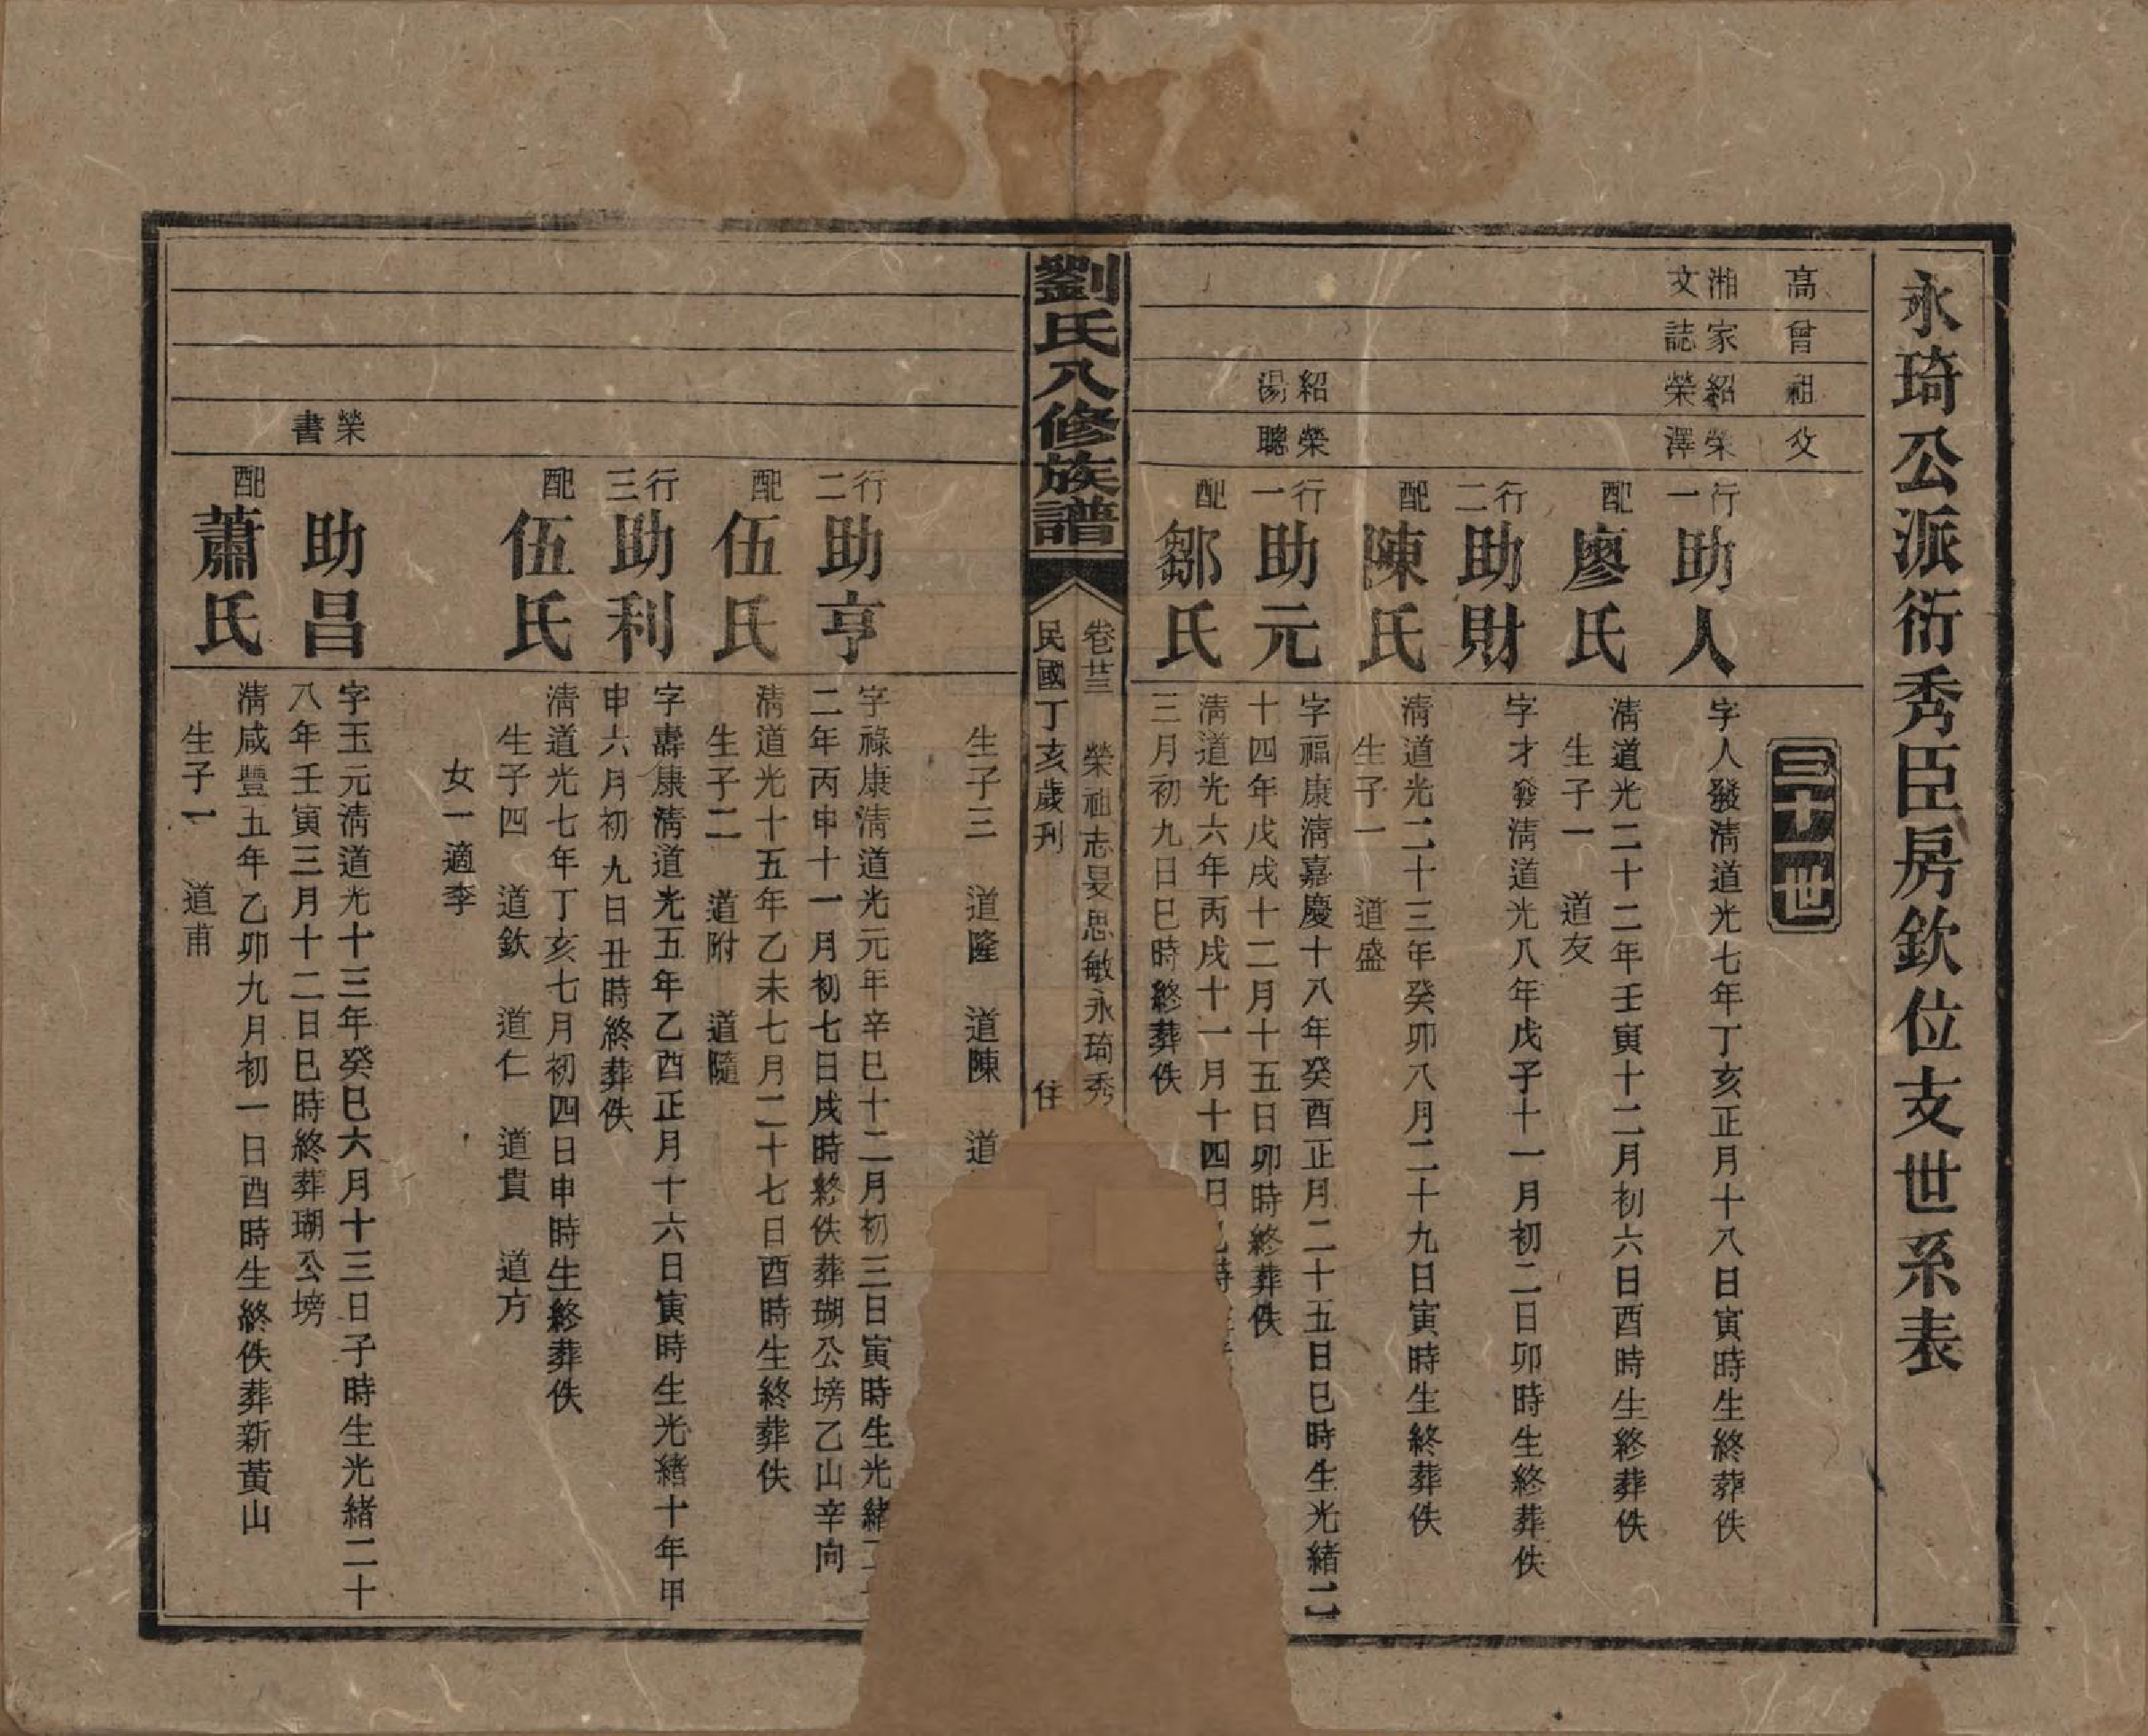 永琦公派衍秀臣房欽位支世系表
高
曾
祖
父
三十世
湘文
家誌
紹榮
榮澤
行一
助人
字人發淸道光七年丁亥正月十八日寅時生終葬佚
配
廖氏
淸道光二十二年壬寅十二月初六日酉時生終葬佚
生子一 道友
行二
助財
字才發淸道光八年戊子十一月初二日卯時生終葬佚
配
陳氏
淸道光二十三年癸卯八月二十九日寅時生終葬佚
生子一 道盛
紹湯
榮聰
行一
助元
字福康淸嘉慶十八年癸酉正月二十五日巳時生光緒二
十四年戊戌十二月十五日卯時終葬佚
配
鄒氏
淸道光六年丙戌十一月十四日
三月初九日巳時終葬佚
劉氏八修族譜
卷廿三 榮祖志旻思敏永琦秀
民國丁亥歲刊 住
生子三 道隆 道陳 道
行二
助亨
字祿康淸道光元年辛巳十二月初三日寅時生光緒二
二年丙申十一月初七日戌時終佚葬瑚公塝乙山辛向
配
伍氏
淸道光十五年乙未七月二十七日酉時生終葬佚
生子二 道附 道隨
行三
助利
字壽康淸道光五年乙酉正月十六日寅時生光緒十年甲
申六月初九日丑時終葬佚
配
伍氏
淸道光七年丁亥七月初四日申時生終葬佚
生子四 道欽 道仁 道貴 道方
女一適李
榮書
助昌
字玉元淸道光十三年癸巳六月十三日子時生光緒二十
八年壬寅三月十二日巳時終葬瑚公塝
配
蕭氏
淸咸豐五年乙卯九月初一日酉時生終佚葬新黃山
生子一 道甫